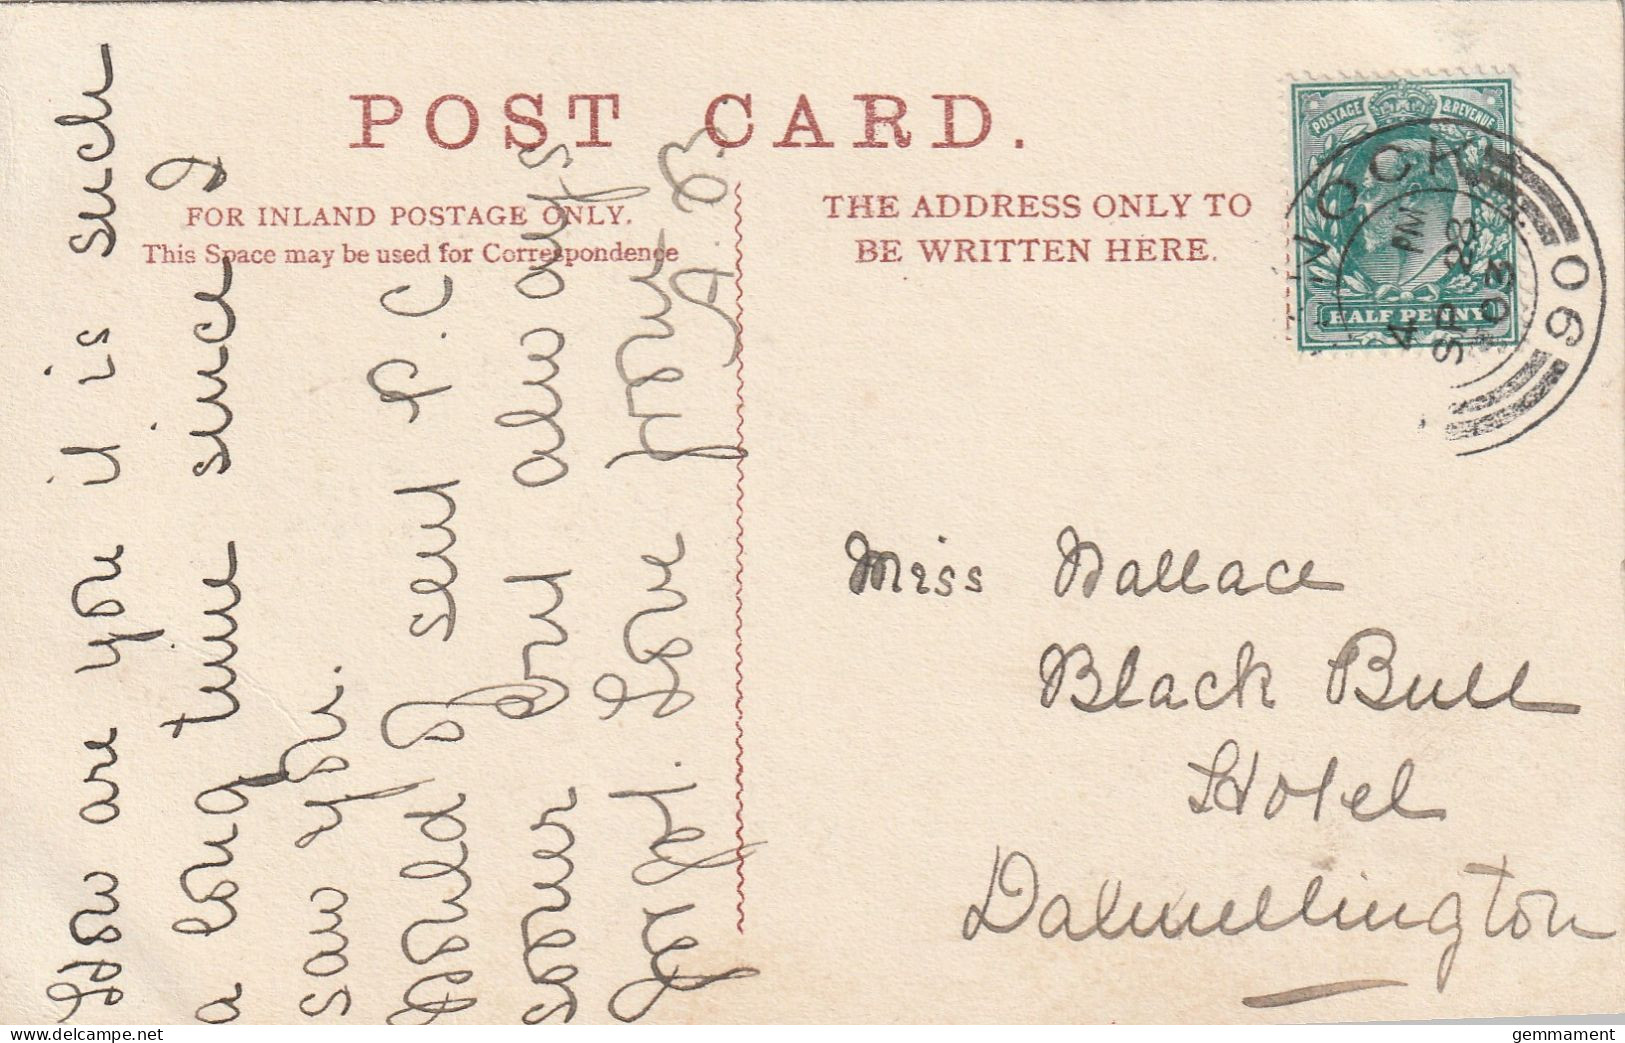 POST CARD.
FOR INLAND POSTAGE ONLY.
This Space may be used for Correspondence
THE ADDRESS ONLY TO
BE WRITTEN HERE.
POSTAGE & REVENUE
HALF PENNY
NOCK
4 PM
SP 28
03
90
How are you it is such
a long time since I
saw you.
Would I sent P.C
sooner but always
forgot. Love from
A.B.
Miss Wallace
Black Bull
Hotel
Dalmellington
www.delcampe.net
gemmament